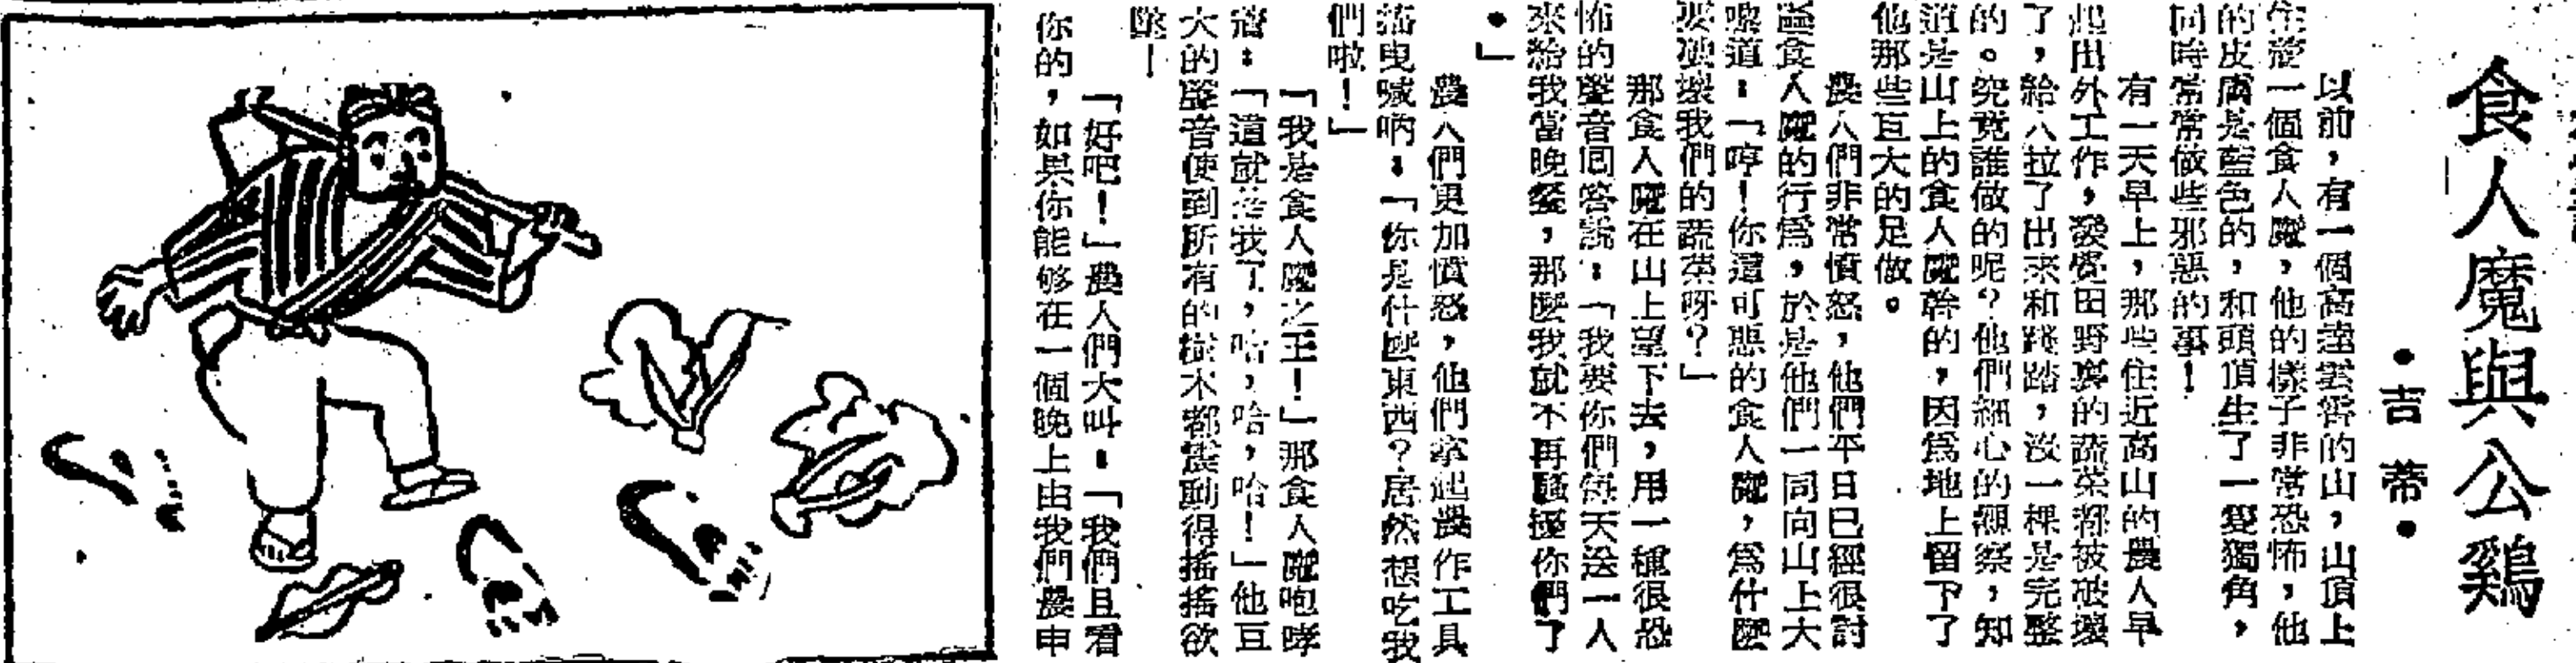 食人魔與公鷄
•吉蒂•
以前，有一個高達雲霄的山，山頂上
住着一個食人魔，他的樣子非常恐怖，他
的皮膚是藍色的，和頭頂生了一隻獨角，
同時常常做些邪惡的事！
有一天早上，那些住近高山的農人早
起出外工作，發覺田野裏的蔬菜都被破壞
了，給人拉了出來和踐踏，沒一棵是完整
的。究竟誰做的呢？他們細心的觀察，知
道是山上的食人魔幹的，因爲地上留下了
他那些巨大的足做。
農人們非常憤怒，他們平日已經很討
厭食人魔的行爲，於是他們一同向山上大
嚷道：「哼！你這可惡的食人魔，爲什麼
要破壞我們的蔬菜呀？」
那食人魔在山上望下去，用一種很恐
怖的聲音回答說：「我要你們每天送一人
來給我當晚餐，那麼我就不再騷擾你們了
。」
農人們更加憤怒，他們拿起農作工具
搖曳喊吶：「你是什麼東西？居然想吃我
們啦！」
「我是食人魔之王！」那食人魔咆哮
着：「這就是我了，哈，哈，哈！」他巨
大的聲音使到所有的樹木都震動得搖搖欲
墜！
「好吧！」農人們大叫：「我們且看
你的，如果你能够在一個晚上由我們農申